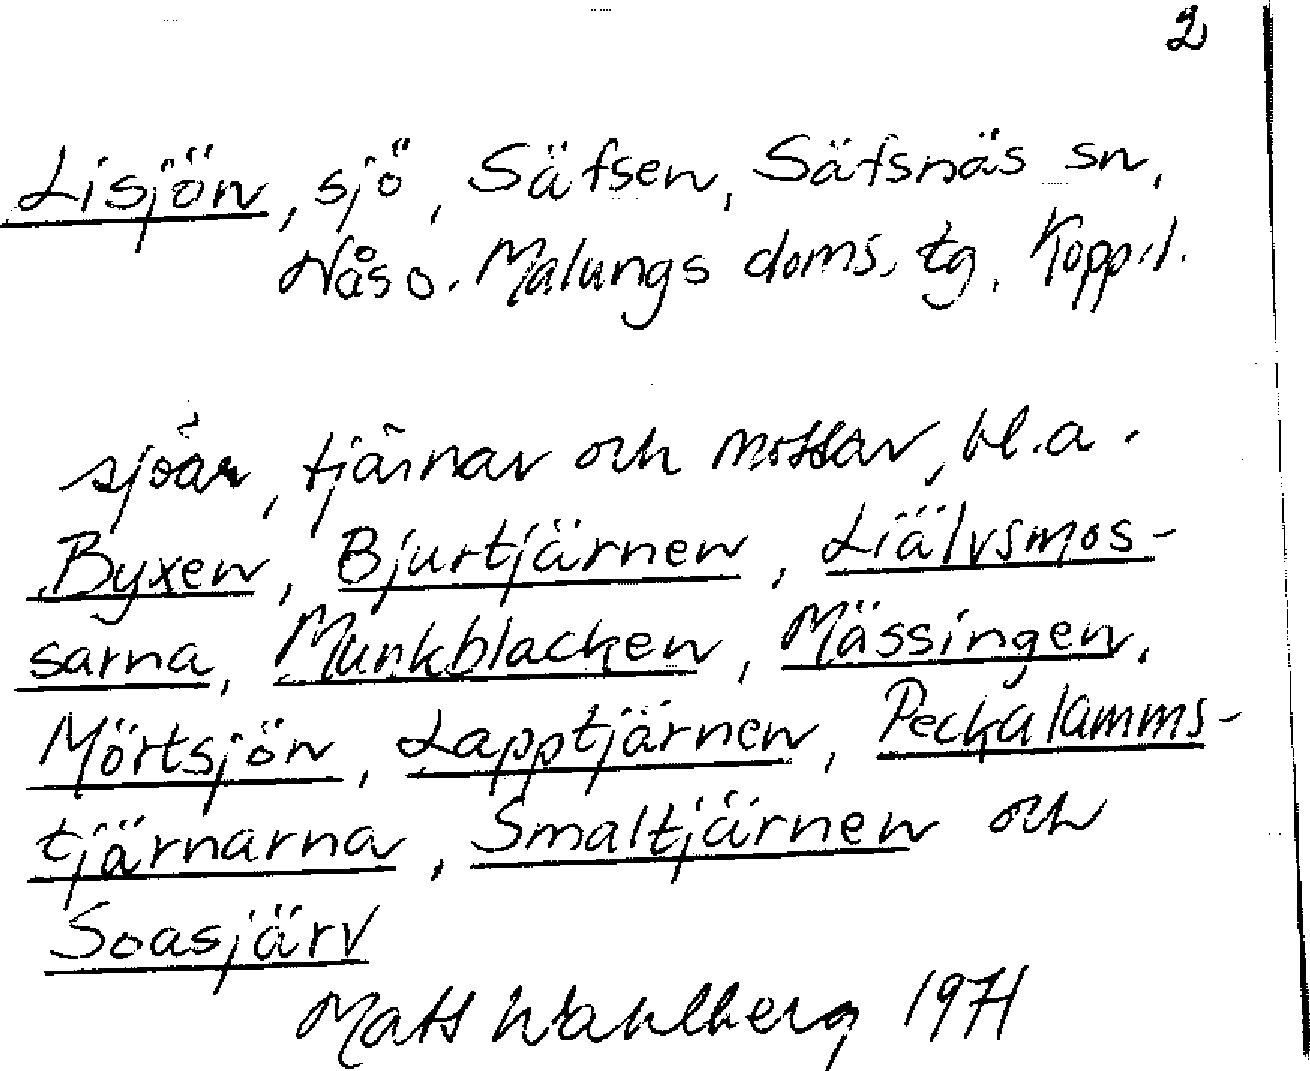 2
Lisjön, sjö, Säfsen, Säfsnäs sn,
Nås o. Malungs doms. tg. Kopp.l.
sjöar, tjärnar och mossar, bl.a.
Byxen, Bjurtjärnen, Liälvsmos-
sarna, Munkblacken, Mässingen,
Mörtsjön, Lapptjärnen, Peckalamms-
tjärnarna, Smaltjärnen och
Soasjärv
Mats Wahlberg 1971